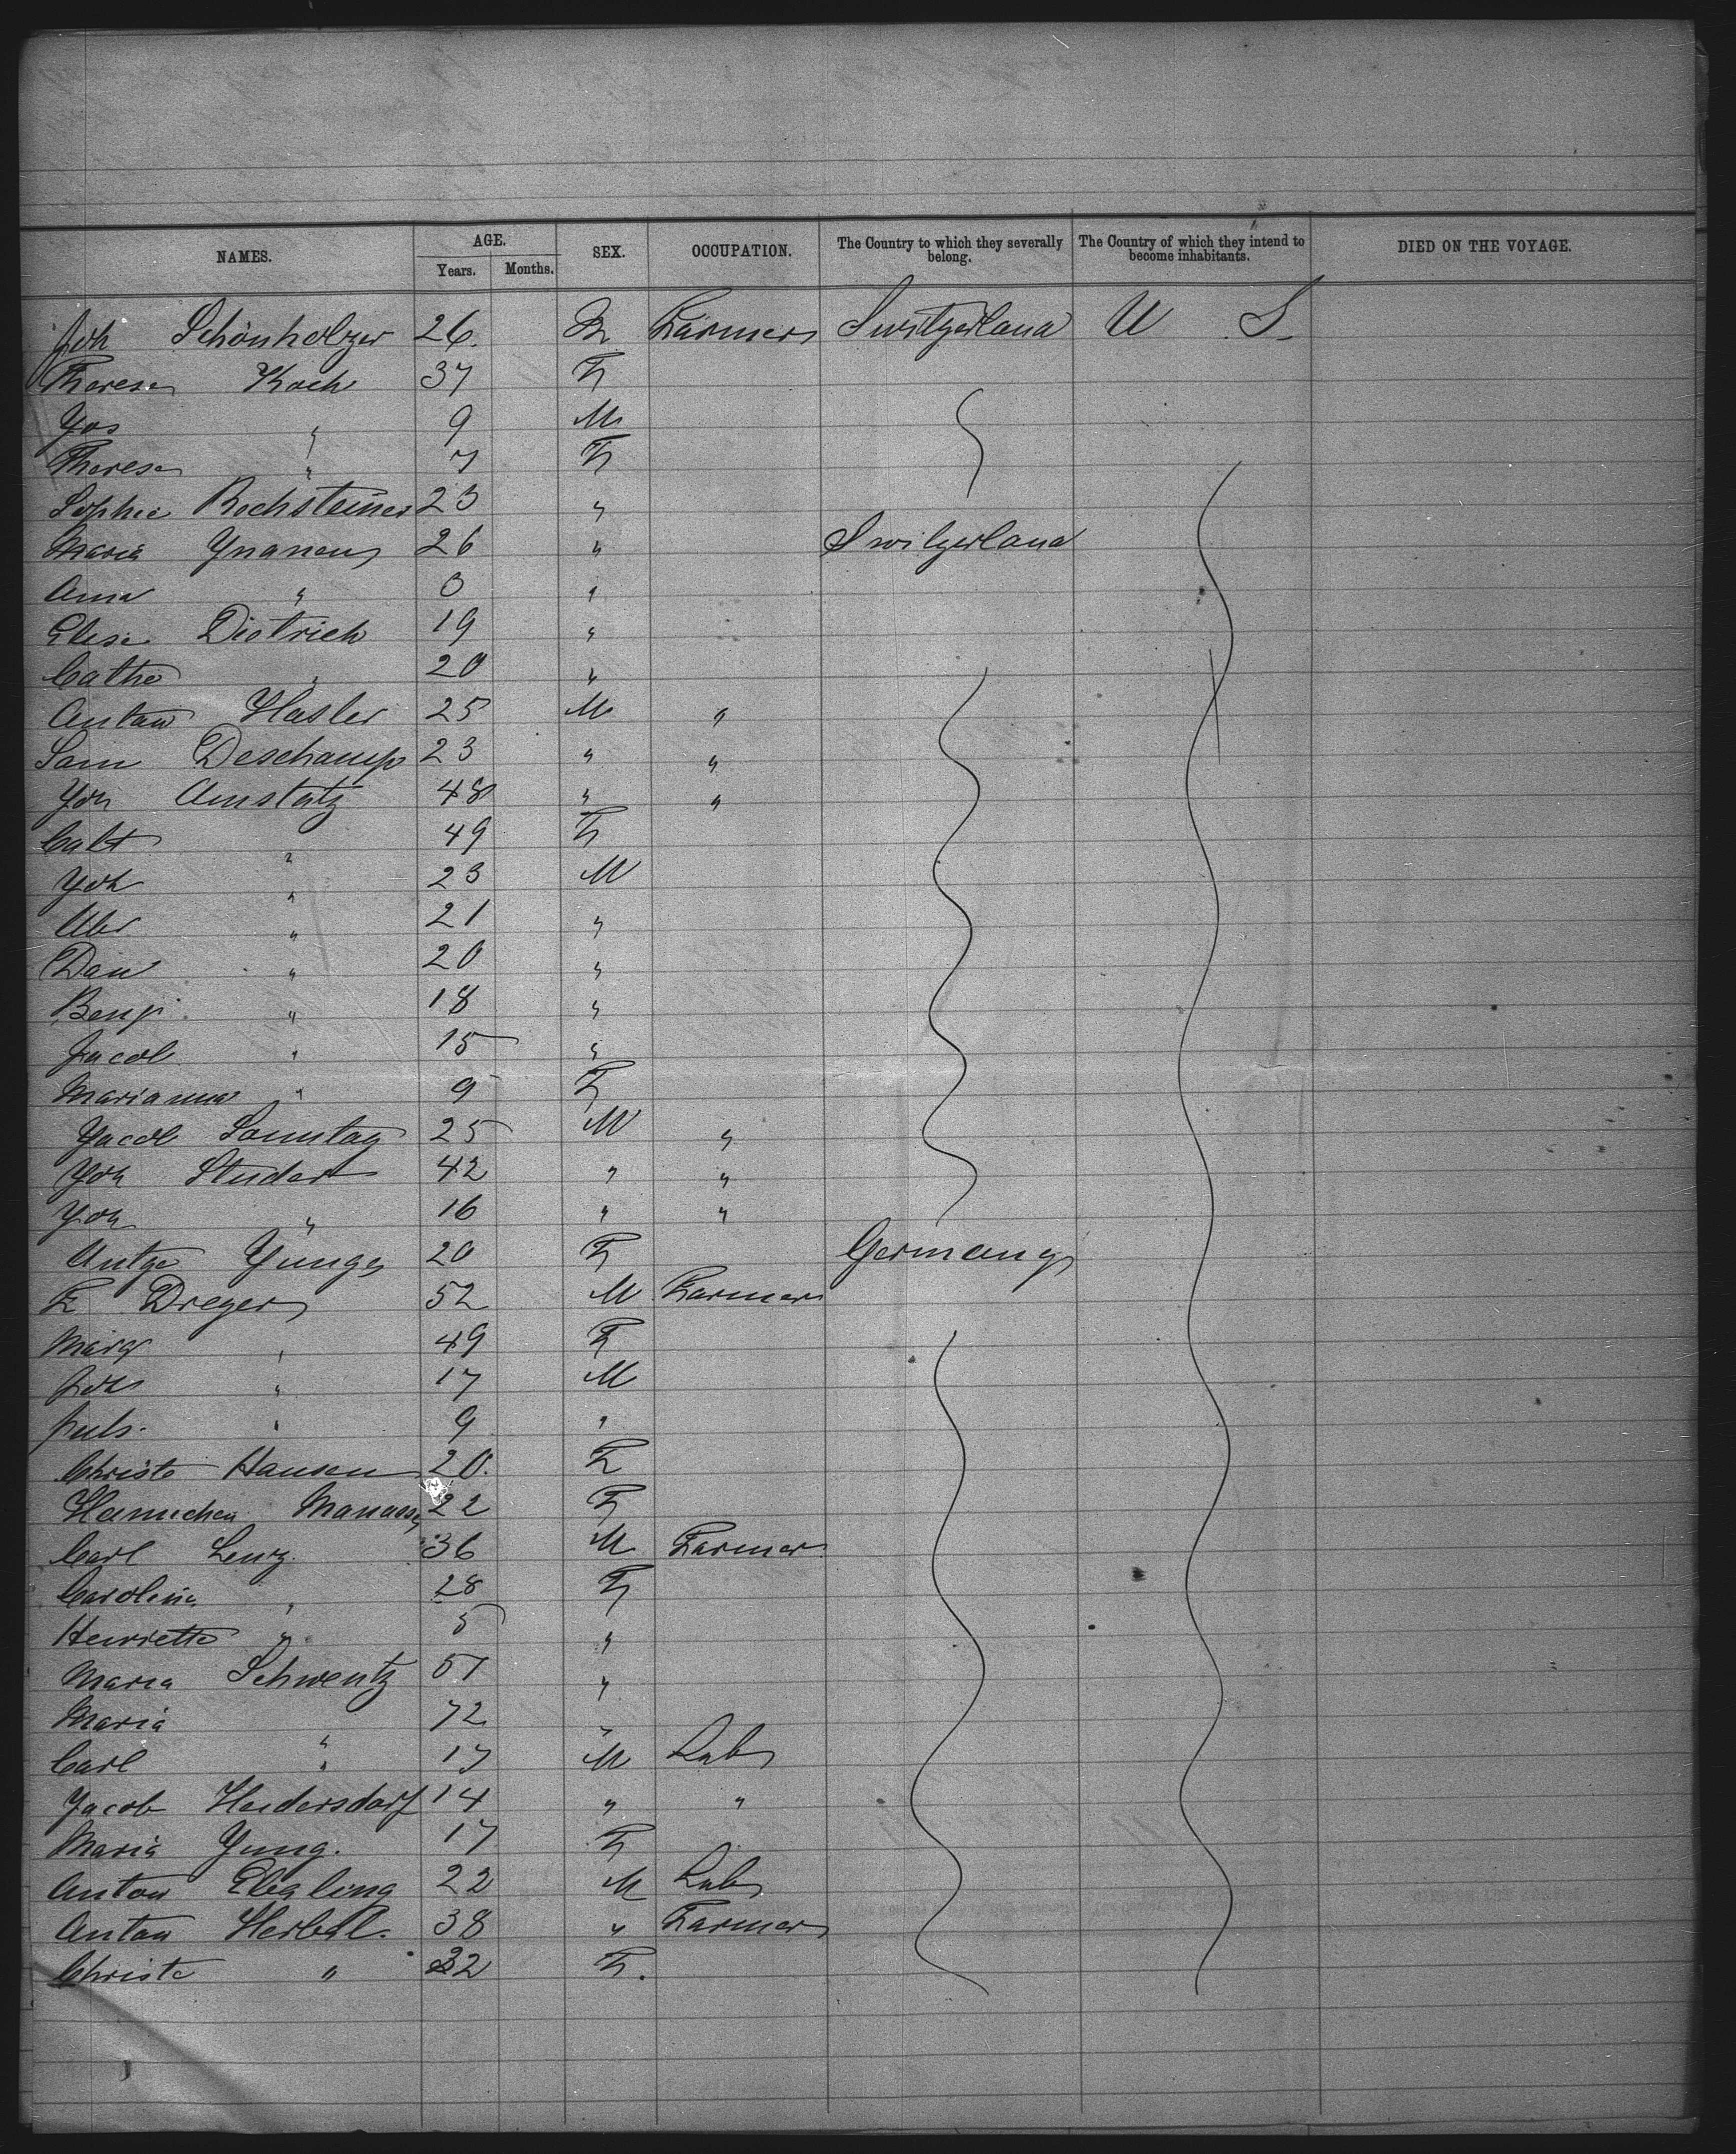 NAMES. AGE. Years. Months. SEX. OCCUPATION. The Country to which they severally belong. The Country of which they intend to become inhabitants. DIED ON THE VOYAGE.
Joh Schönholzer 26. M Farmer Switzerland U S.
Therese Koch 37 F
Jos " 9 M
Therese " 7 F
Sophie Bochsteiner 23 "
Maria 26 " Switzerland
Anna " "
Elise Dietrich 19 "
Cathe " 20 "
Anton Hasler 25 M "
Sam Deschamp 23 " "
Joh Amstutz 48 " "
Cath " 49 F
Joh " 23 M
Abr " 21 "
Dan " 20 "
Benj. " 18 "
Jacob " 15 "
Marianna " 9 F
Jacob Sonntag 25 M "
Joh Studer 42 " "
Joh " 16 " "
Antge Junge 20 F Germany
F Dreger 52 M Farmer
Marg " 49 F
Joh " 17 M
Juls. " 9 "
Christe Hansen 20. F
Hannchen Manasse 22 F
Carl Lenz. 36 M Farmer
Carolina " 28 F
Henriette " 5 "
Maria Schwentz 51 "
Maria " 72 "
Carl " 17 M Lab
Jacob Heidersdorf 14 " "
Maria Jung. 17 F
Anton Ebeling 22 M Lab
Anton Herbst. 38 " Farmer
Christe " 32 F.